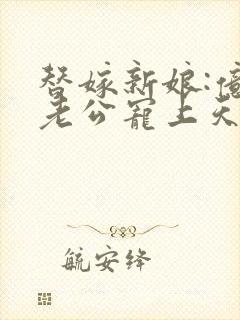 替嫁新娘:億
老公寵上天
航安绛